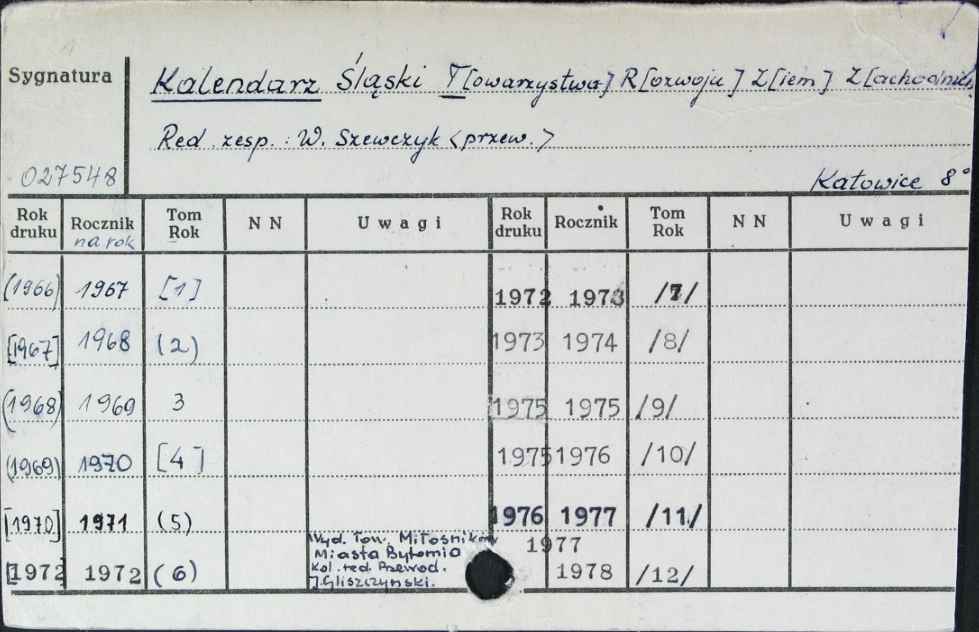 Sygnatura
Kalendarz Śląski T[owarzystwa] R[ozwoju] Z[iem] Z[achodnich
Red. zesp.: W. Szewczyk <przew.>
027548
Katowice 8°
Rok druku Rocznik na rok Tom Rok N N U w a g i Rok druku Rocznik Tom Rok N N U w a g i
(1966) 1967 [1] 1972 1973 /7/
[1967] 1968 (2) 1973 1974 /8/
(1968) 1969 3 1975 1975 /9/
(1969) 1970 [4] 1975 1976 /10/
[1970] 1971 (5) 1976 1977 /11/
Wyd. Tow. Miłośników
Miasta Bytomia
Kol. red. Przewod.
J. Gliszczyński.
[1972 1972 (6) 1977 1978 /12/